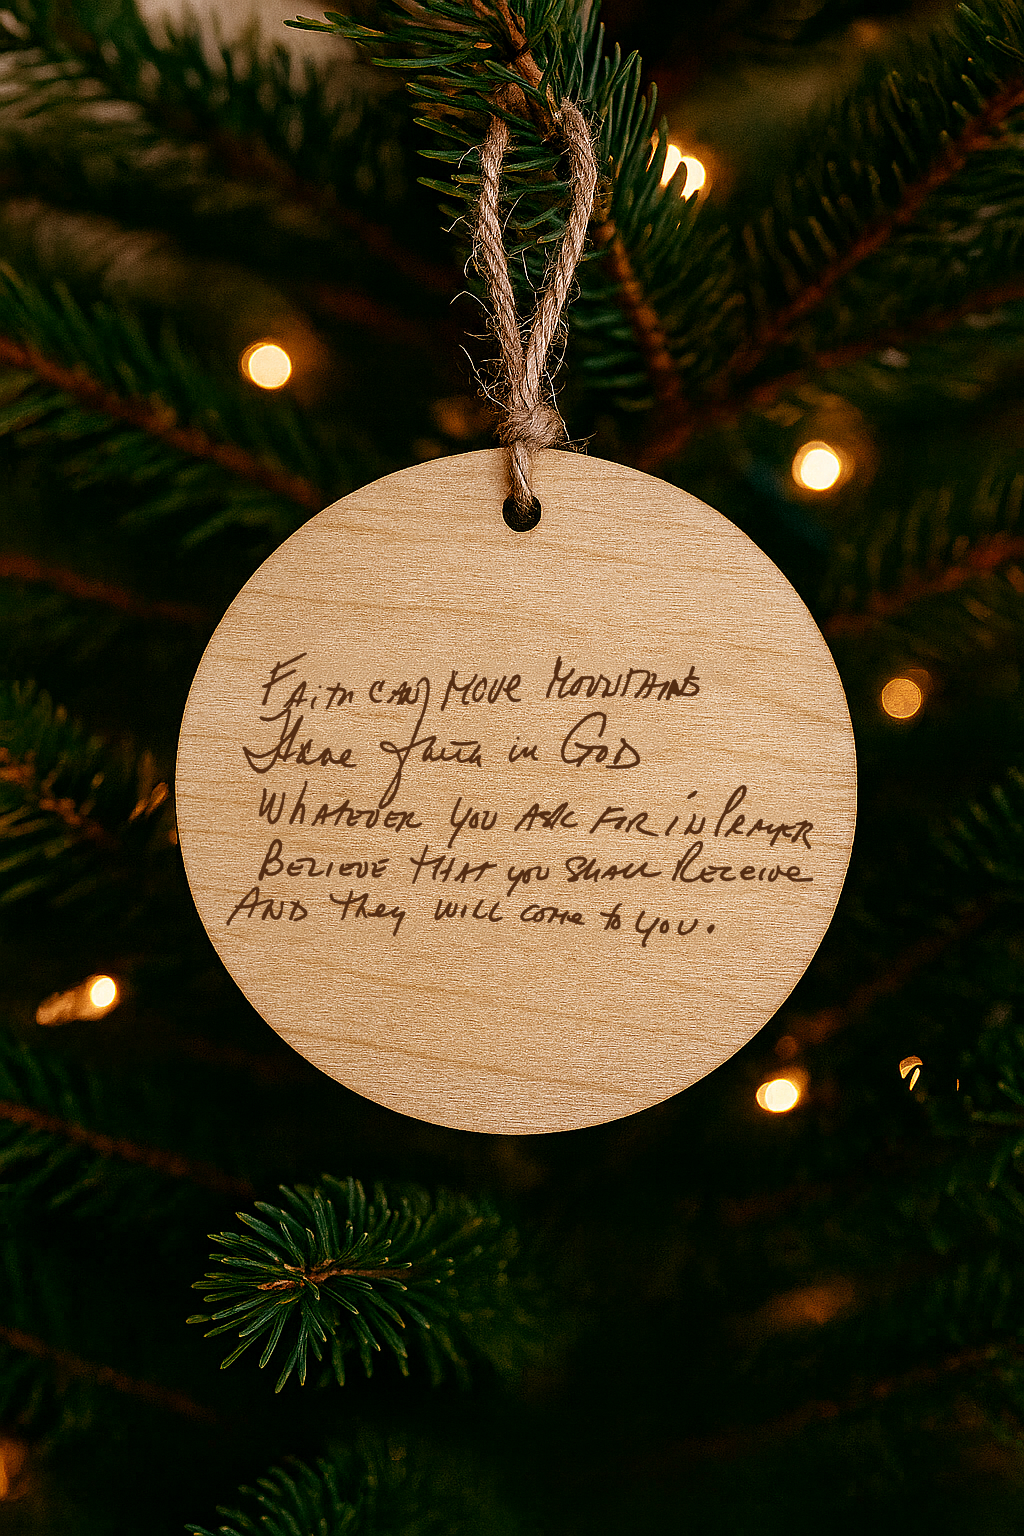 Faith can Move Mountains
Have faith in God
Whatever you ask for in Prayer
Believe that you shall Receive
And they will come to you.